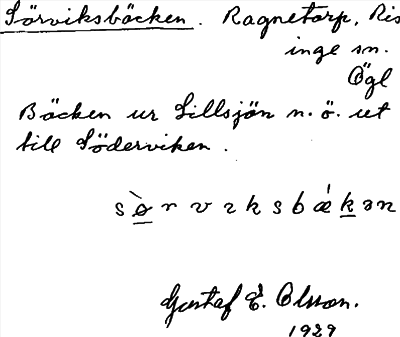 Sörviksbäcken. Ragnetorp, Ris
inge sn.
Ögl
Bäcken ur Lillsjön n.ö. ut
till Söderviken.
Gustaf E. Olsson.
1929